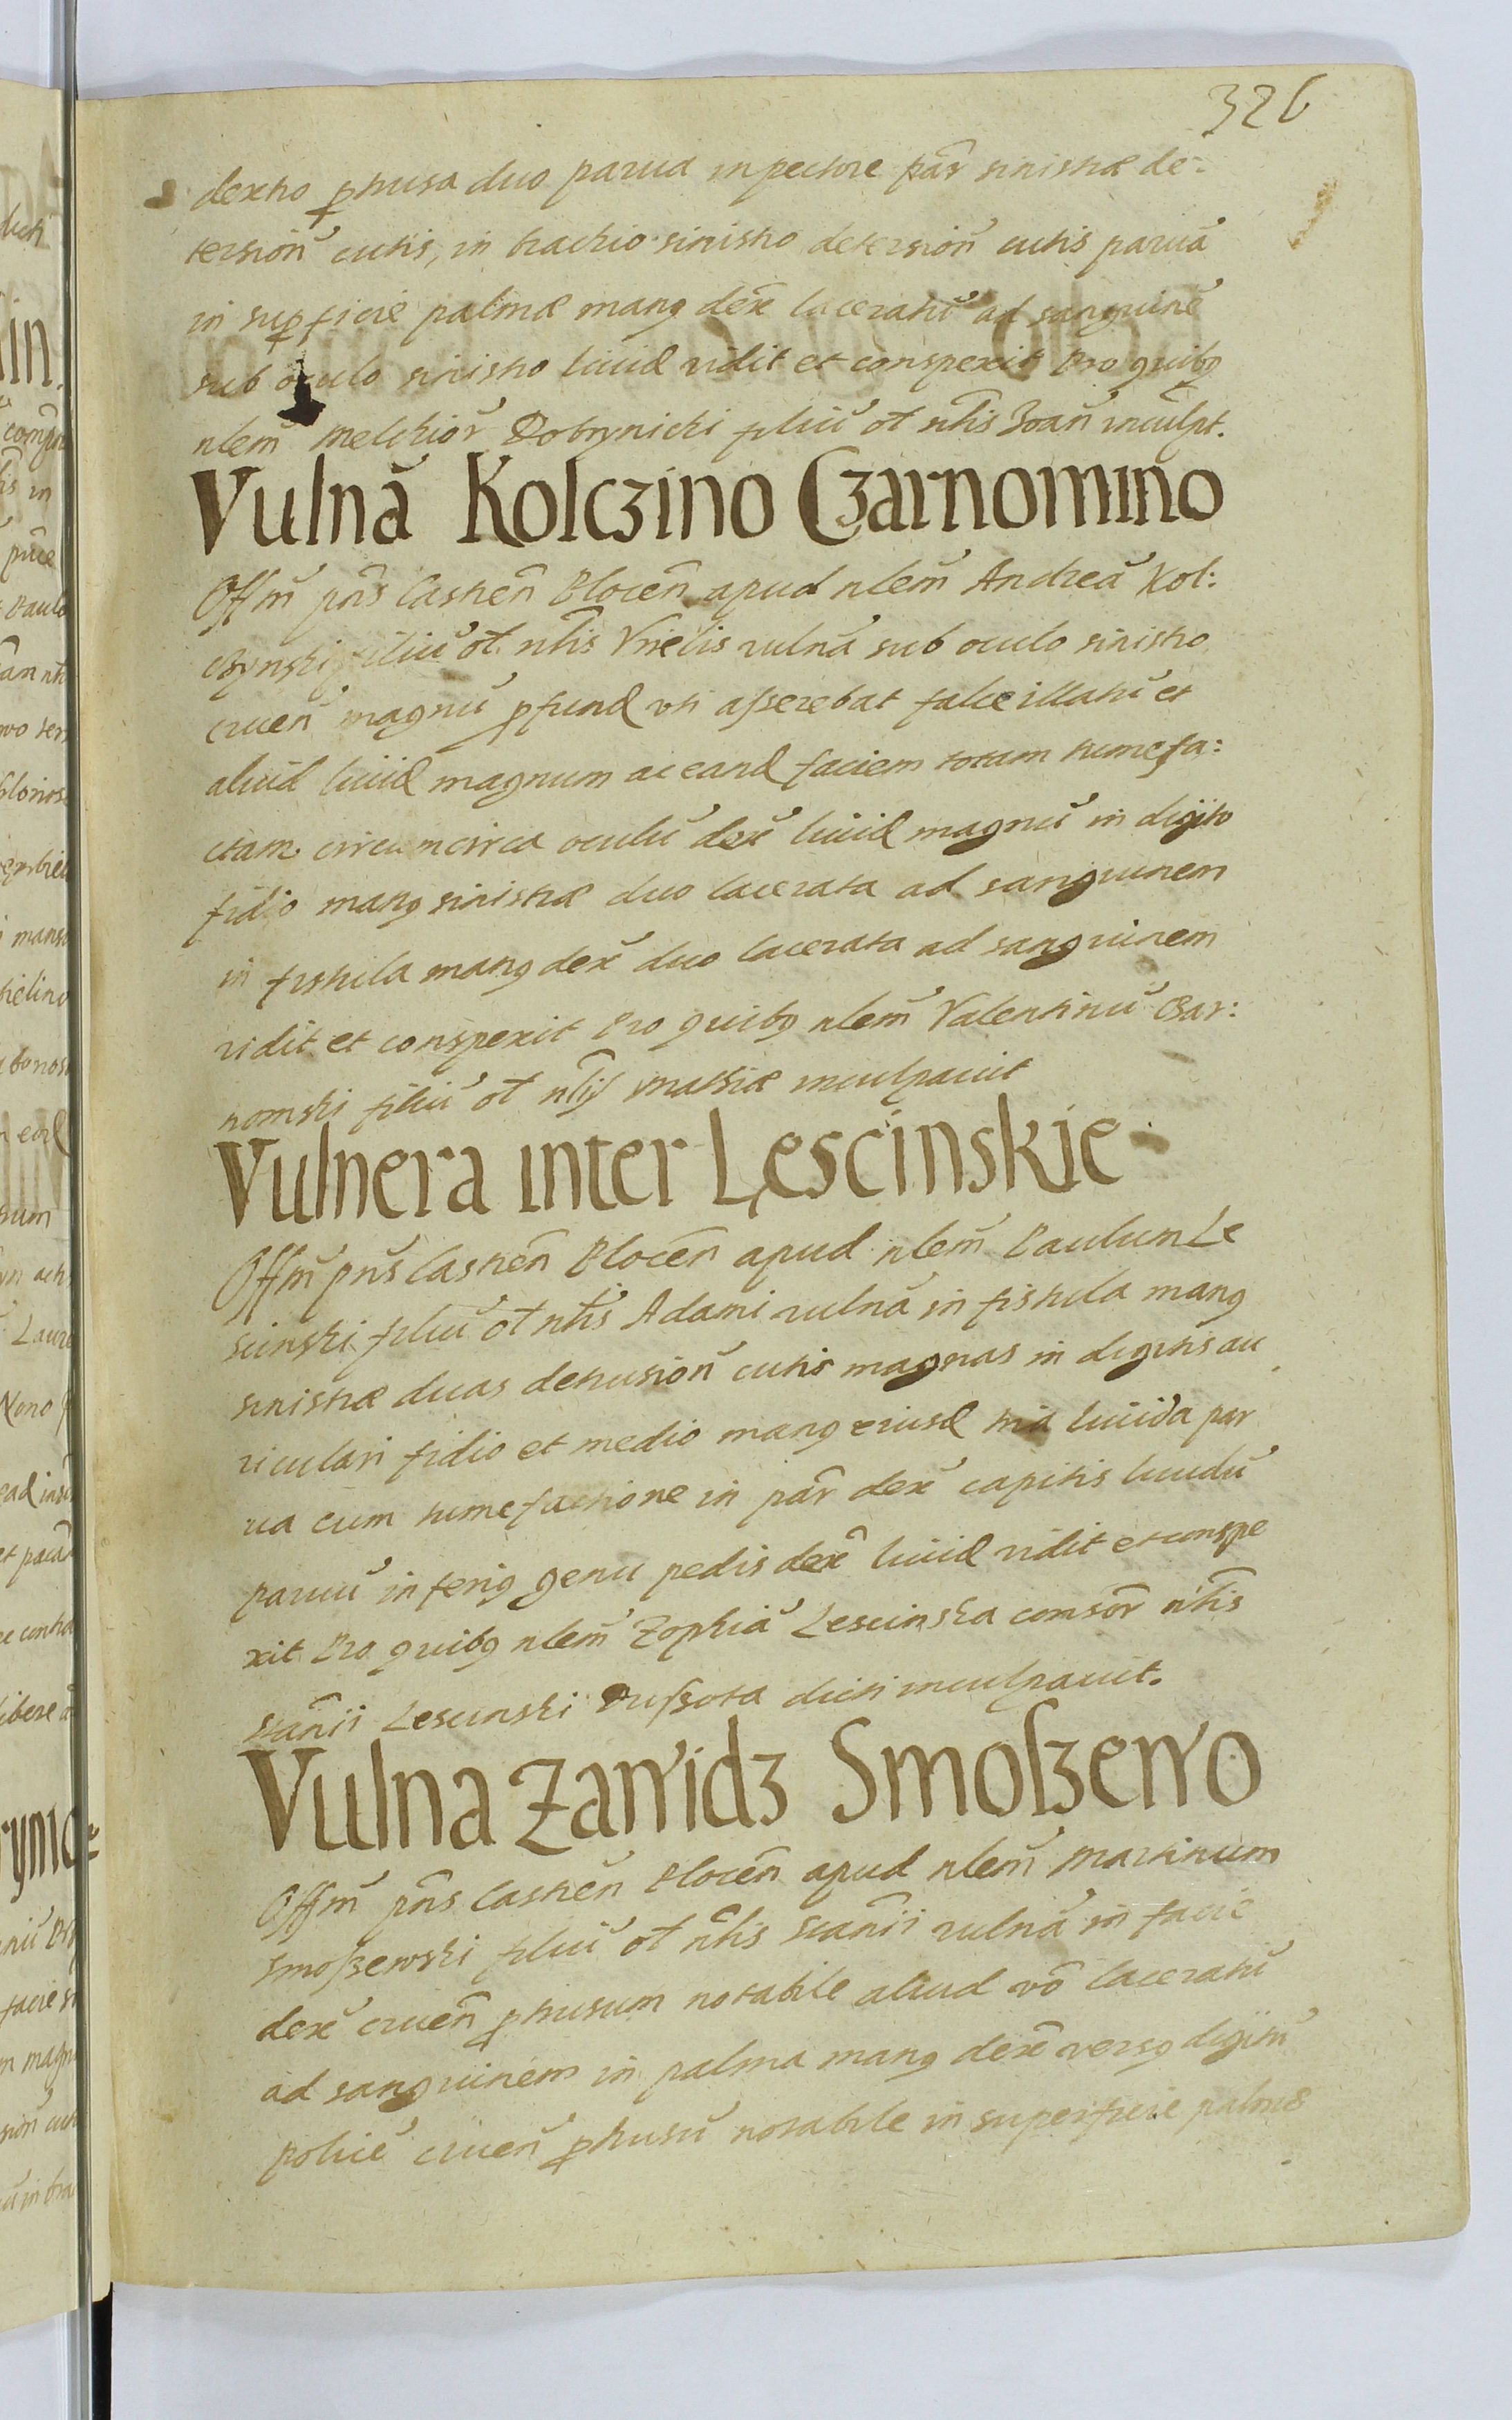 326
dextro ꝑtusa duo parua in pectore par̃ sinistræ de:
tersion̄ cutis, in brachio sinistro detersion̄ cutis paruā
in suꝑficie palmæ manꝯ dex̄ laceratū ad sanguinē
sub oculo sinistro liuid vidit et conspexit Pro quibꝯ
nlem̄ Melchior̄ Dobrynicki filiū ol̄ nl̃is Joan̄ inculpt.
Vulnā Kolczino Czarnomino
Off̄m pn̄s Castren̄ Plocen̄ apud nlem̄ Andreā Kol:
czynski filiū ol̄ nl̃is Vrielis vulnā sub oculo sinistro
cruen̄ magnū ꝓfund vti asserebat falce illatū et
aliud liuid magnum ac eand faciem totam tumefa:
ctam circumcirca oculū dex̄ liuid magnū in digito
fidio manꝯ sinistræ duo lacerata ad sanguinem
in fistula manꝯ dex̄ duo lacerata ad sanguinem
vidit et conspexit Pro quibꝯ nlem̄ Valentinū Czar:
nomski filiū ol̄ nl̃is Mathiæ inculpauit
Vulnera inter Lescinskie
Off̄m pn̄s Castren̄ Plocen̄ apud nlem̄ Paulum Le
scinski filiū ol̄ nl̃is Adami vulnā in fistula manꝯ
sinistræ duas detrusion̄ cutis magnas in digitis au
riculari fidio et medio manꝯ eiusd tria liuida par
ua cum tumefactione in par̃ dex̄ capitis liuidū
paruū inferiꝯ genu pedis dex̄ liuid vidit et conspe
xit Pro quibꝯ nlem̄ Zophiā Lescinska consor̃ nl̃is
Stan̄ii Lescinski Dussota dicti inculpauit.
Vulna Zawidz Smoszewo
Off̄m pn̄s Castren̄ Plocen̄ apud nlem̄ Martinum
Smoszewski filiū ol̄ nl̃is Stan̄ii vulnā in facie
dex̄ cruen̄ ꝑtusum notabile aliud vō laceratū
ad sanguinem in palma manꝯ dex̄ versꝯ digitū
polic̄ē cruen̄ ꝑtusū notabile in superficie palmæ